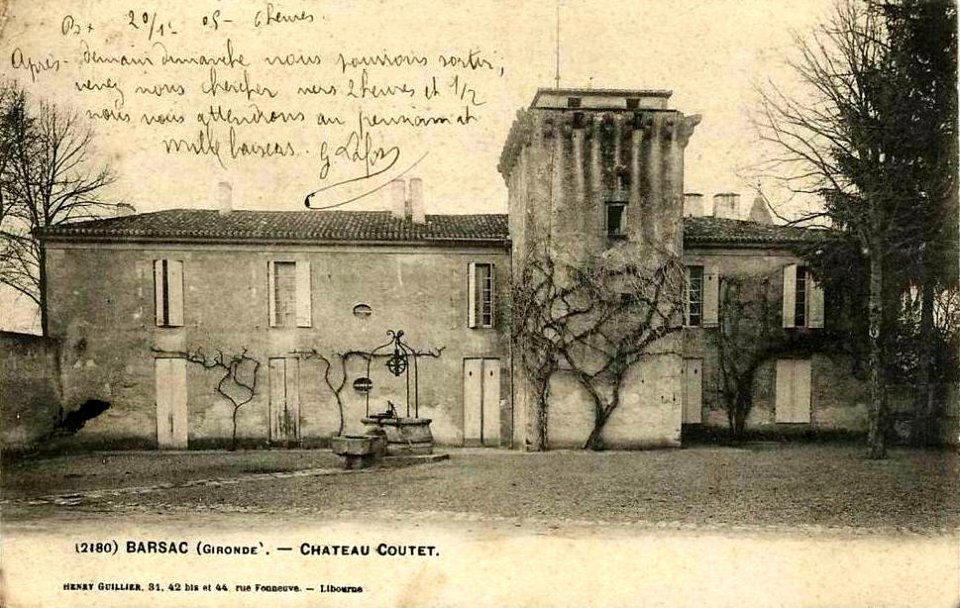 Bx 20/1- 05- 6heures.
Après-demain dimanche nous pourrons sortir,
venez nous chercher vers 2heures et 1/2
nous vous attendrons au pensionnat
mille baisers. G Lafon
(2180) BARSAC (GIRONDE). — CHATEAU COUTET.
HENRY GUILLIER, 31, 42 bis et 44, rue Fonneuve. — Libourne